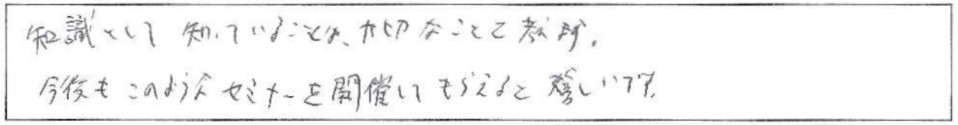 知識として知っていることは、大切なことと思います。
今後もこのようなセミナーを開催してもらえると嬉しいです。